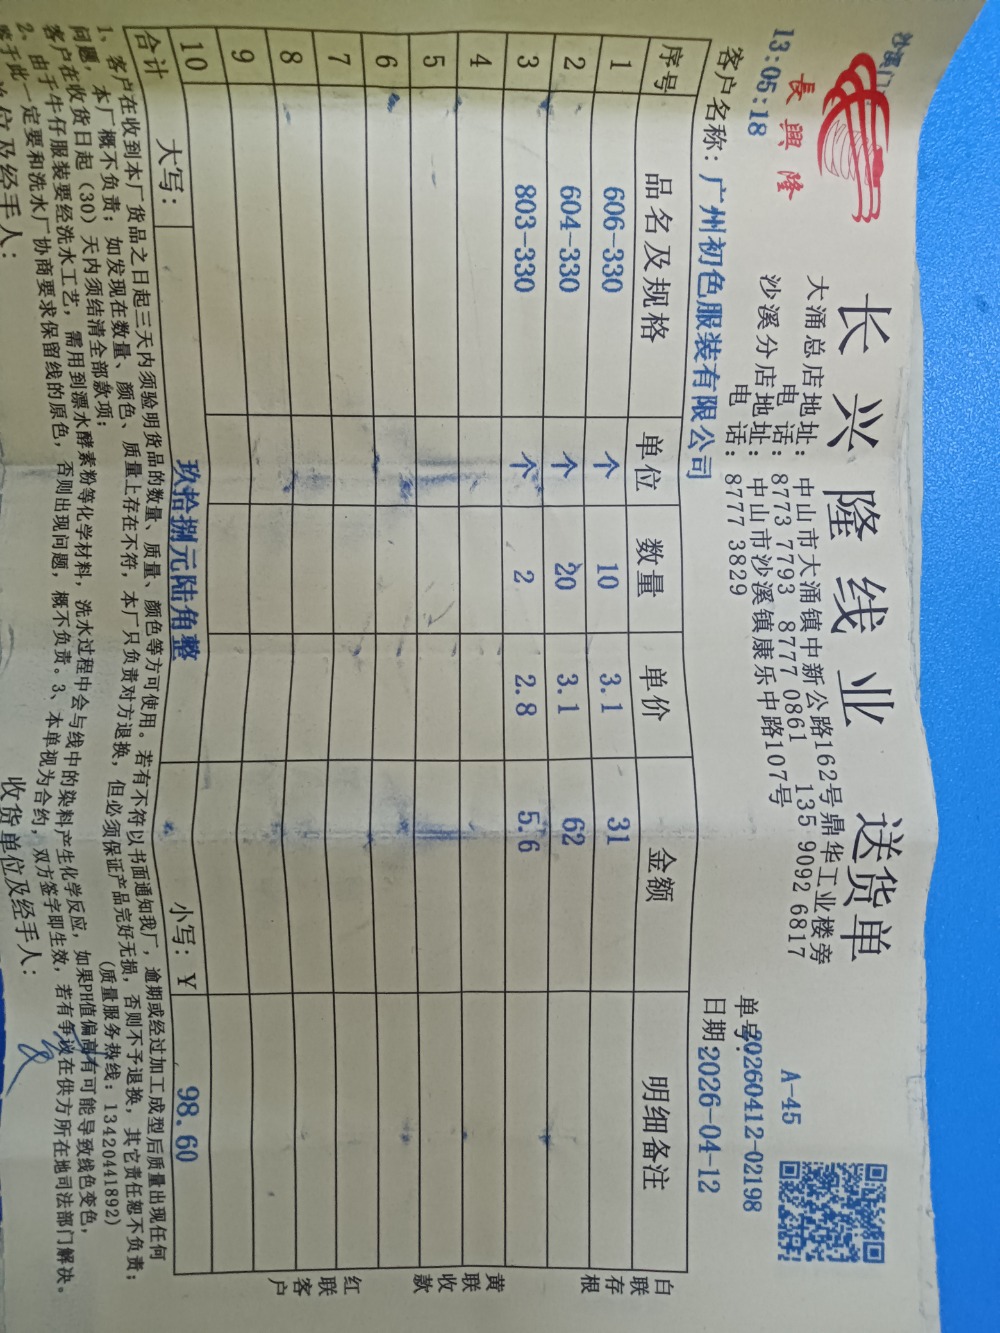 沙溪门
長興隆
13:05:18
长兴隆线业 送货单
大涌总店地址：中山市大涌镇中新公路162号鼎华工业楼旁
电话：8773 7793 8777 0861 135 9092 6817
沙溪分店地址：中山市沙溪镇康乐中路107号
电话：8777 3829
A-45
单号：20260412-02198
客户名称：广州初色服装有限公司
日期 2026-04-12
序号 品名及规格 单位 数量 单价 金额 明细备注
1 606-330 个 10 3.1 31
2 604-330 个 20 3.1 62
3 803-330 个 2 2.8 5.6
4
5
6
7
8
9
10
合计 大写：玖拾捌元陆角整 小写：¥ 98.60
白联存根
黄联收款
红联客户
1、客户在收到本厂货品之日起三天内须验明货品的数量、质量、颜色等方可使用。若有不符以书面通知我厂，逾期或经过加工成型后质量出现任何
问题，本厂概不负责；如发现在数量、颜色、质量上存在不符，本厂只负责对方退换，但必须保证产品完好无损，否则不予退换，其它责任恕不负责；
客户在收货日起（30）天内须结清全部款项； （质量服务热线：13420441892）
2、由于牛仔服装要经洗水工艺，需用到漂水酵素粉等化学材料，洗水过程中会与线中的染料产生化学反应，如果PH值偏高有可能导致线色变色，
鉴于此一定要和洗水厂协商要求保留线的原色，否则出现问题，概不负责。3、本单视为合约，双方签字即生效，若有争议在供方所在地司法部门解决。
位及经手人： 收货单位及经手人：